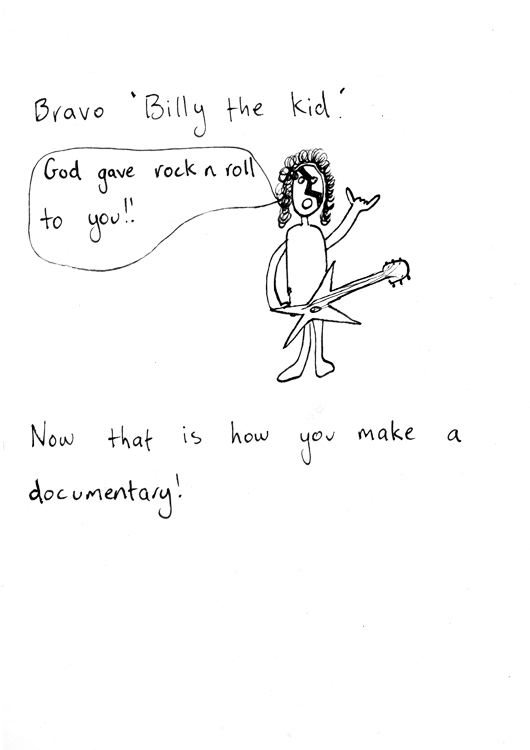 Bravo 'Billy the kid'.
God gave rock n roll
to you!!
Now that is how you make a
documentary!